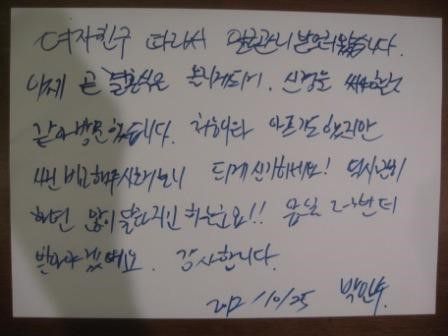 여자친구 따라서 얼굴관리 받으러 왔습니다.
이제 곧 결혼식을 올리게되어, 신경을 써야할것
같아 방문했습니다. 처음이라 아프기도 했지만
비교해주시고나니 되게 신기하네요! 역시 관리
하면 많이 달라지긴 하는군요!! 몇일 2~3번 더
받아야 겠네요. 감사합니다.
2012/10/25 박민수